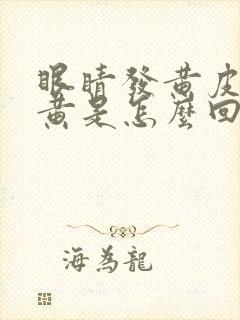 眼睛發黃皮
黃是怎麼回
海為龍